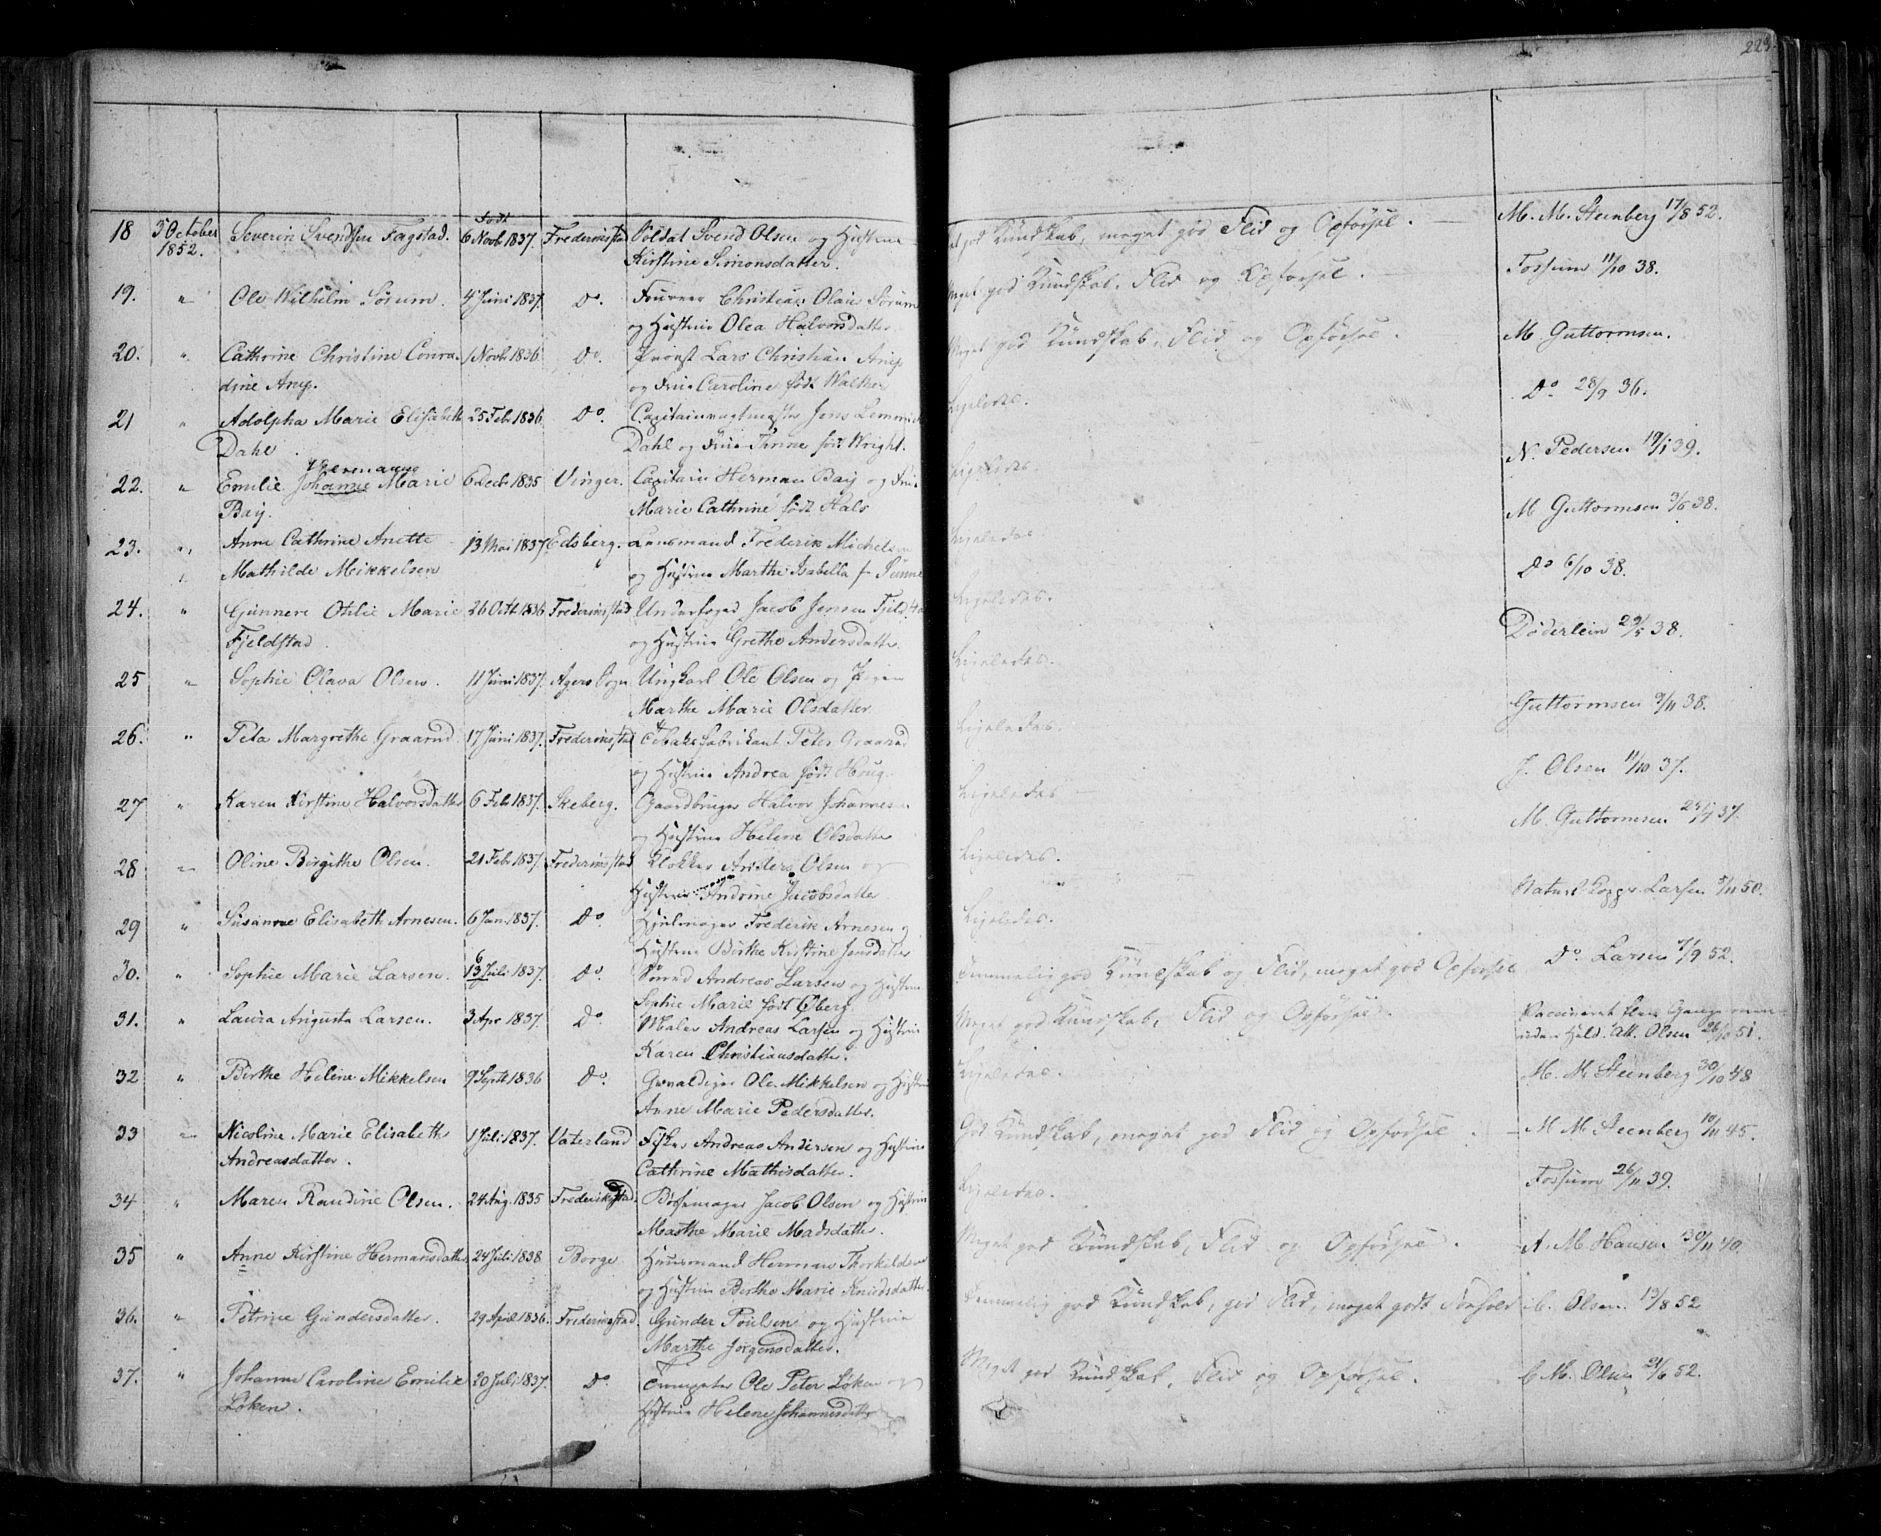 223.
18 3 October 1852. Severin Svendsen Fagstad. Født 6 Novb 1837. Frederiksstad Soldat Svend Olsen og Hustrue
Kirstine Simonsdatter.
god Kundskab, meget god Flid og Opførsel. M. M. Steenberg 17/8 52.
19. " Ole Wilhelm Sørum. 4 Juni 1837. Do. Christian Olai Sørum
og Hustrue Olea Halvorsdatter.
Meget god Kundskab, Flid og Opførsel. Fossum 11/10 38.
20. " Cathrine Christine Conra- 1 Novb 1836. Do. Provst Lars Christian
dine og Frue Caroline født Walther
Meget god Kundskab, Flid og Opførsel. M. Guttormsen.
21 " Adolpha Marie Elisabeth 25 Feb 1836. Do. Jens Lemmich
Dahl. Dahl og Frue født Wright.
Ligeledes. Do. 28/9 36.
22. " Emilie Johanne Marie 6 Decb 1835 Vinger. Capitain Herman Bay og Frue
Hermanna
Bay. Marie Cathrine født Hals
Ligeledes. N. Pedersen 19/1 39.
23. " Anne Cathrine Anette 13 Mai 1837 Edsberg. Lensmand Frederik Michelsen
Mathilde Mikkelsen og Hustrue Marthe Isabella f.
Ligeledes M Guttormsen 3/6 38.
24. " Gunnere Otilie Marie 26 Octb 1836 Frederiksstad Underfoged Jacob Jensen
Fjeldstad og Hustrue Grethe Andersdatter.
Ligeledes. Do 6/10 38.
25 " Sophie Olava Olsen. 11 Juni 1837. Agers Sogn Ungkarl Ole Olsen og Pigen
Marthe Marie Olsdatter
Ligeledes. Döderlein 29/5 38.
26. " Peta Margrethe Graarud 17 Juni 1837. Frederiksstad Tobaksfabrikant Peter Graarud
og Hustrue Andrea født Houg.
Ligeledes. Guttormsen 9/11 38.
27 " Karen Kirstine Halvorsdatter 6 Feb 1837. Skeberg. Gaardbruger Halvor Johannesen
og Hustrue Helene Olsdatter
Ligeledes J. Olsen 11/10 37.
28 " Oline Birgithe Olsen. 21 Feb 1837. Frederiksstad Klokker Anders Olsen og
Hustrue Andrine Jacobsdatter
Ligeledes. M. Guttormsen 37.
29 " Susanne Elisabeth Arnesen. 6 Jan 1837. Do. Hjulmager Frederik Arnesen og
Hustrue Birthe Kirstine Jensdatter
Ligeledes. Naturl Kopper Larsen 50.
30. " Sophie Marie Larsen. 6
13 Juli 1837. Do. Andreas Larsen og Hustrue
Sophie Marie født Øberg.
Temmelig god Kundskab og Flid, meget god Opførsel Do. Larsen 7/9 52.
31. " Laura Augusta Larsen. 3 Apr 1837. Do. Maler Andreas Larsen og Hustrue
Karen Christiansdatter.
Meget god Kundskab, Flid og Opførsel. Vaccineret flere Gange men
uden Held. Att. Olsen 26/10 51.
32 " Birthe Helene Mikkelsen 9 Septb 1836 Do. Gevaldiger Ole Mikkelsen og Hustrue
Anne Marie Pedersdatter.
Ligeledes. M. M. Steenberg 30/10 48
33 " Nicoline Marie Elisabeth 1 Juli 1837. Vaterland Fisker Andreas Andersen og Hustrue
Andreasdatter. Cathrine Mathisdatter.
God Kundskab, meget god Flid og Opførsel. M M Steenberg 10/11 45.
34 " Maren Randine Olsen. 24 Aug. 1835 Frederiksstad. Bøssemager Jacob Olsen og Hustrue
Marthe Marie Madsdatter.
Ligeledes. Fossum 26/11 39.
35 " Anne Kirstine Hermansdatter 24 Juli 1838 Borge Huusmand Herman Thorkildsen
og Hustrue Birthe Marie Knudsdatter.
Meget god Kundskab, Flid og Opførsel. A. M. Hansen 30/11 40.
36. " Petrine Gundersdatter. 29 April 1836. Frederiksstad. Gunder Poulsen og Hustrue
Marthe Jørgensdatter.
Temmelig god Kundskab, god Flid, meget godt Forhold C. Olsen 13/8 52
37. " Johanne Caroline Emilie 20 Juli 1837. Do. Ole Peter Løken og
Løken. Hustrue Helene Johannesdatter
Meget god Kundskab, Flid og Opførsel. C. M. Olsen 21/6 52.